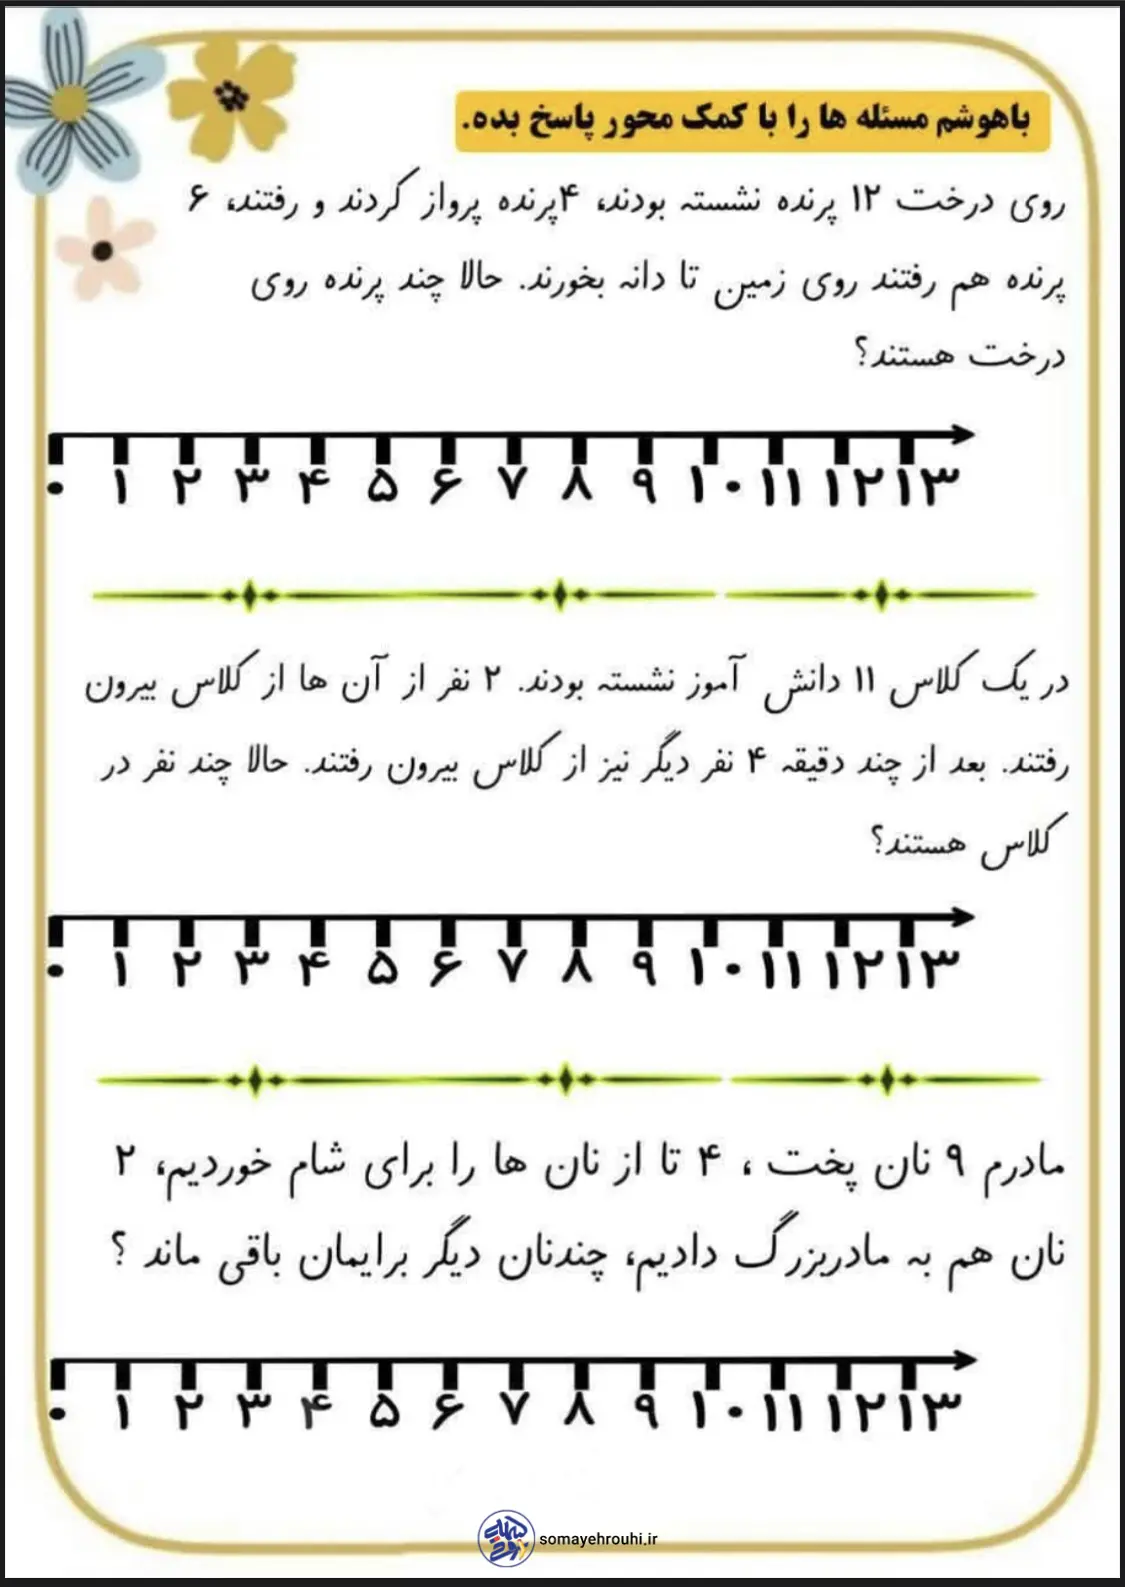 باهوشم مسئله ها را با کمک محور پاسخ بده.
روی درخت ۱۲ پرنده نشسته بودند، ۴پرنده پرواز کردند و رفتند، ۶
پرنده هم رفتند روی زمین تا دانه بخورند. حالا چند پرنده روی
درخت هستند؟
۰ ۱ ۲ ۳ ۴ ۵ ۶ ۷ ۸ ۹ ۱۰ ۱۱ ۱۲ ۱۳
در یک کلاس ۱۱ دانش آموز نشسته بودند. ۲ نفر از آن ها از کلاس بیرون
رفتند. بعد از چند دقیقه ۴ نفر دیگر نیز از کلاس بیرون رفتند. حالا چند نفر در
کلاس هستند؟
۰ ۱ ۲ ۳ ۴ ۵ ۶ ۷ ۸ ۹ ۱۰ ۱۱ ۱۲ ۱۳
مادرم ۹ نان پخت ، ۴ تا از نان ها را برای شام خوردیم، ۲
نان هم به مادربزرگ دادیم، چندنان دیگر برایمان باقی ماند ؟
۰ ۱ ۲ ۳ ۴ ۵ ۶ ۷ ۸ ۹ ۱۰ ۱۱ ۱۲ ۱۳
somayehrouhi.ir